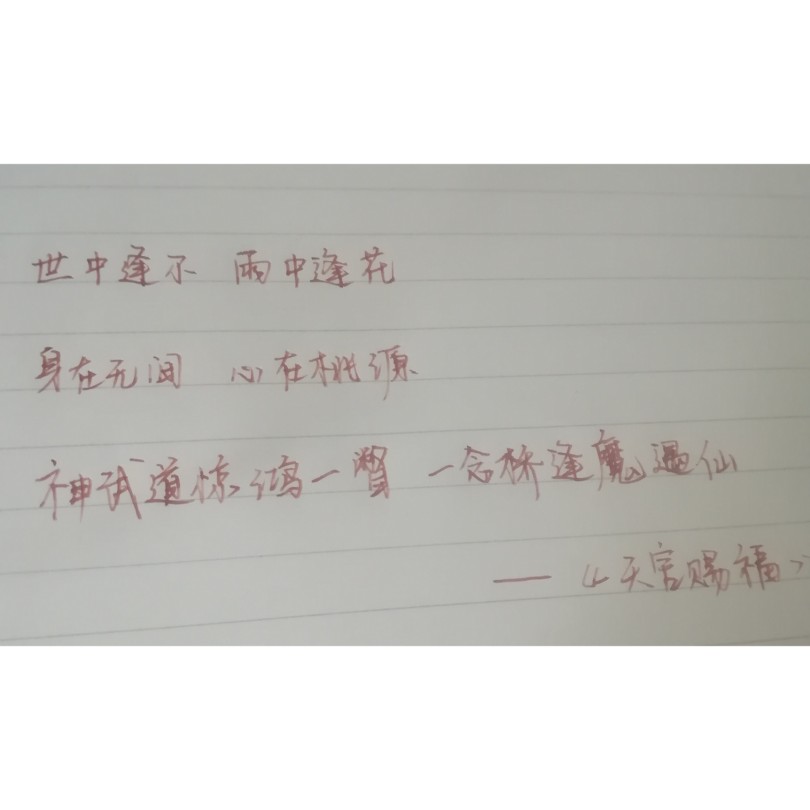 世中逢尔 雨中逢花
身在无间 心在桃源
神武道惊鸿一瞥 一念桥逢魔遇仙
——《天官赐福》